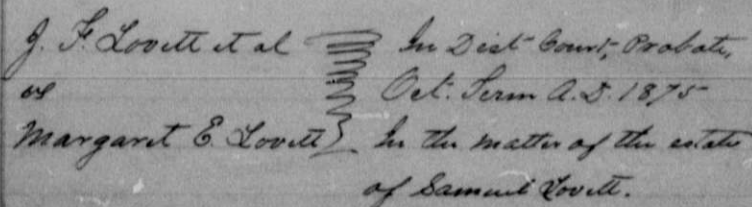 J. F. Lovett et al
vs
Margaret E. Lovett
In Dist Court, Probate,
Oct. Term A.D. 1875
In the matter of the estate
of Samuel Lovett.